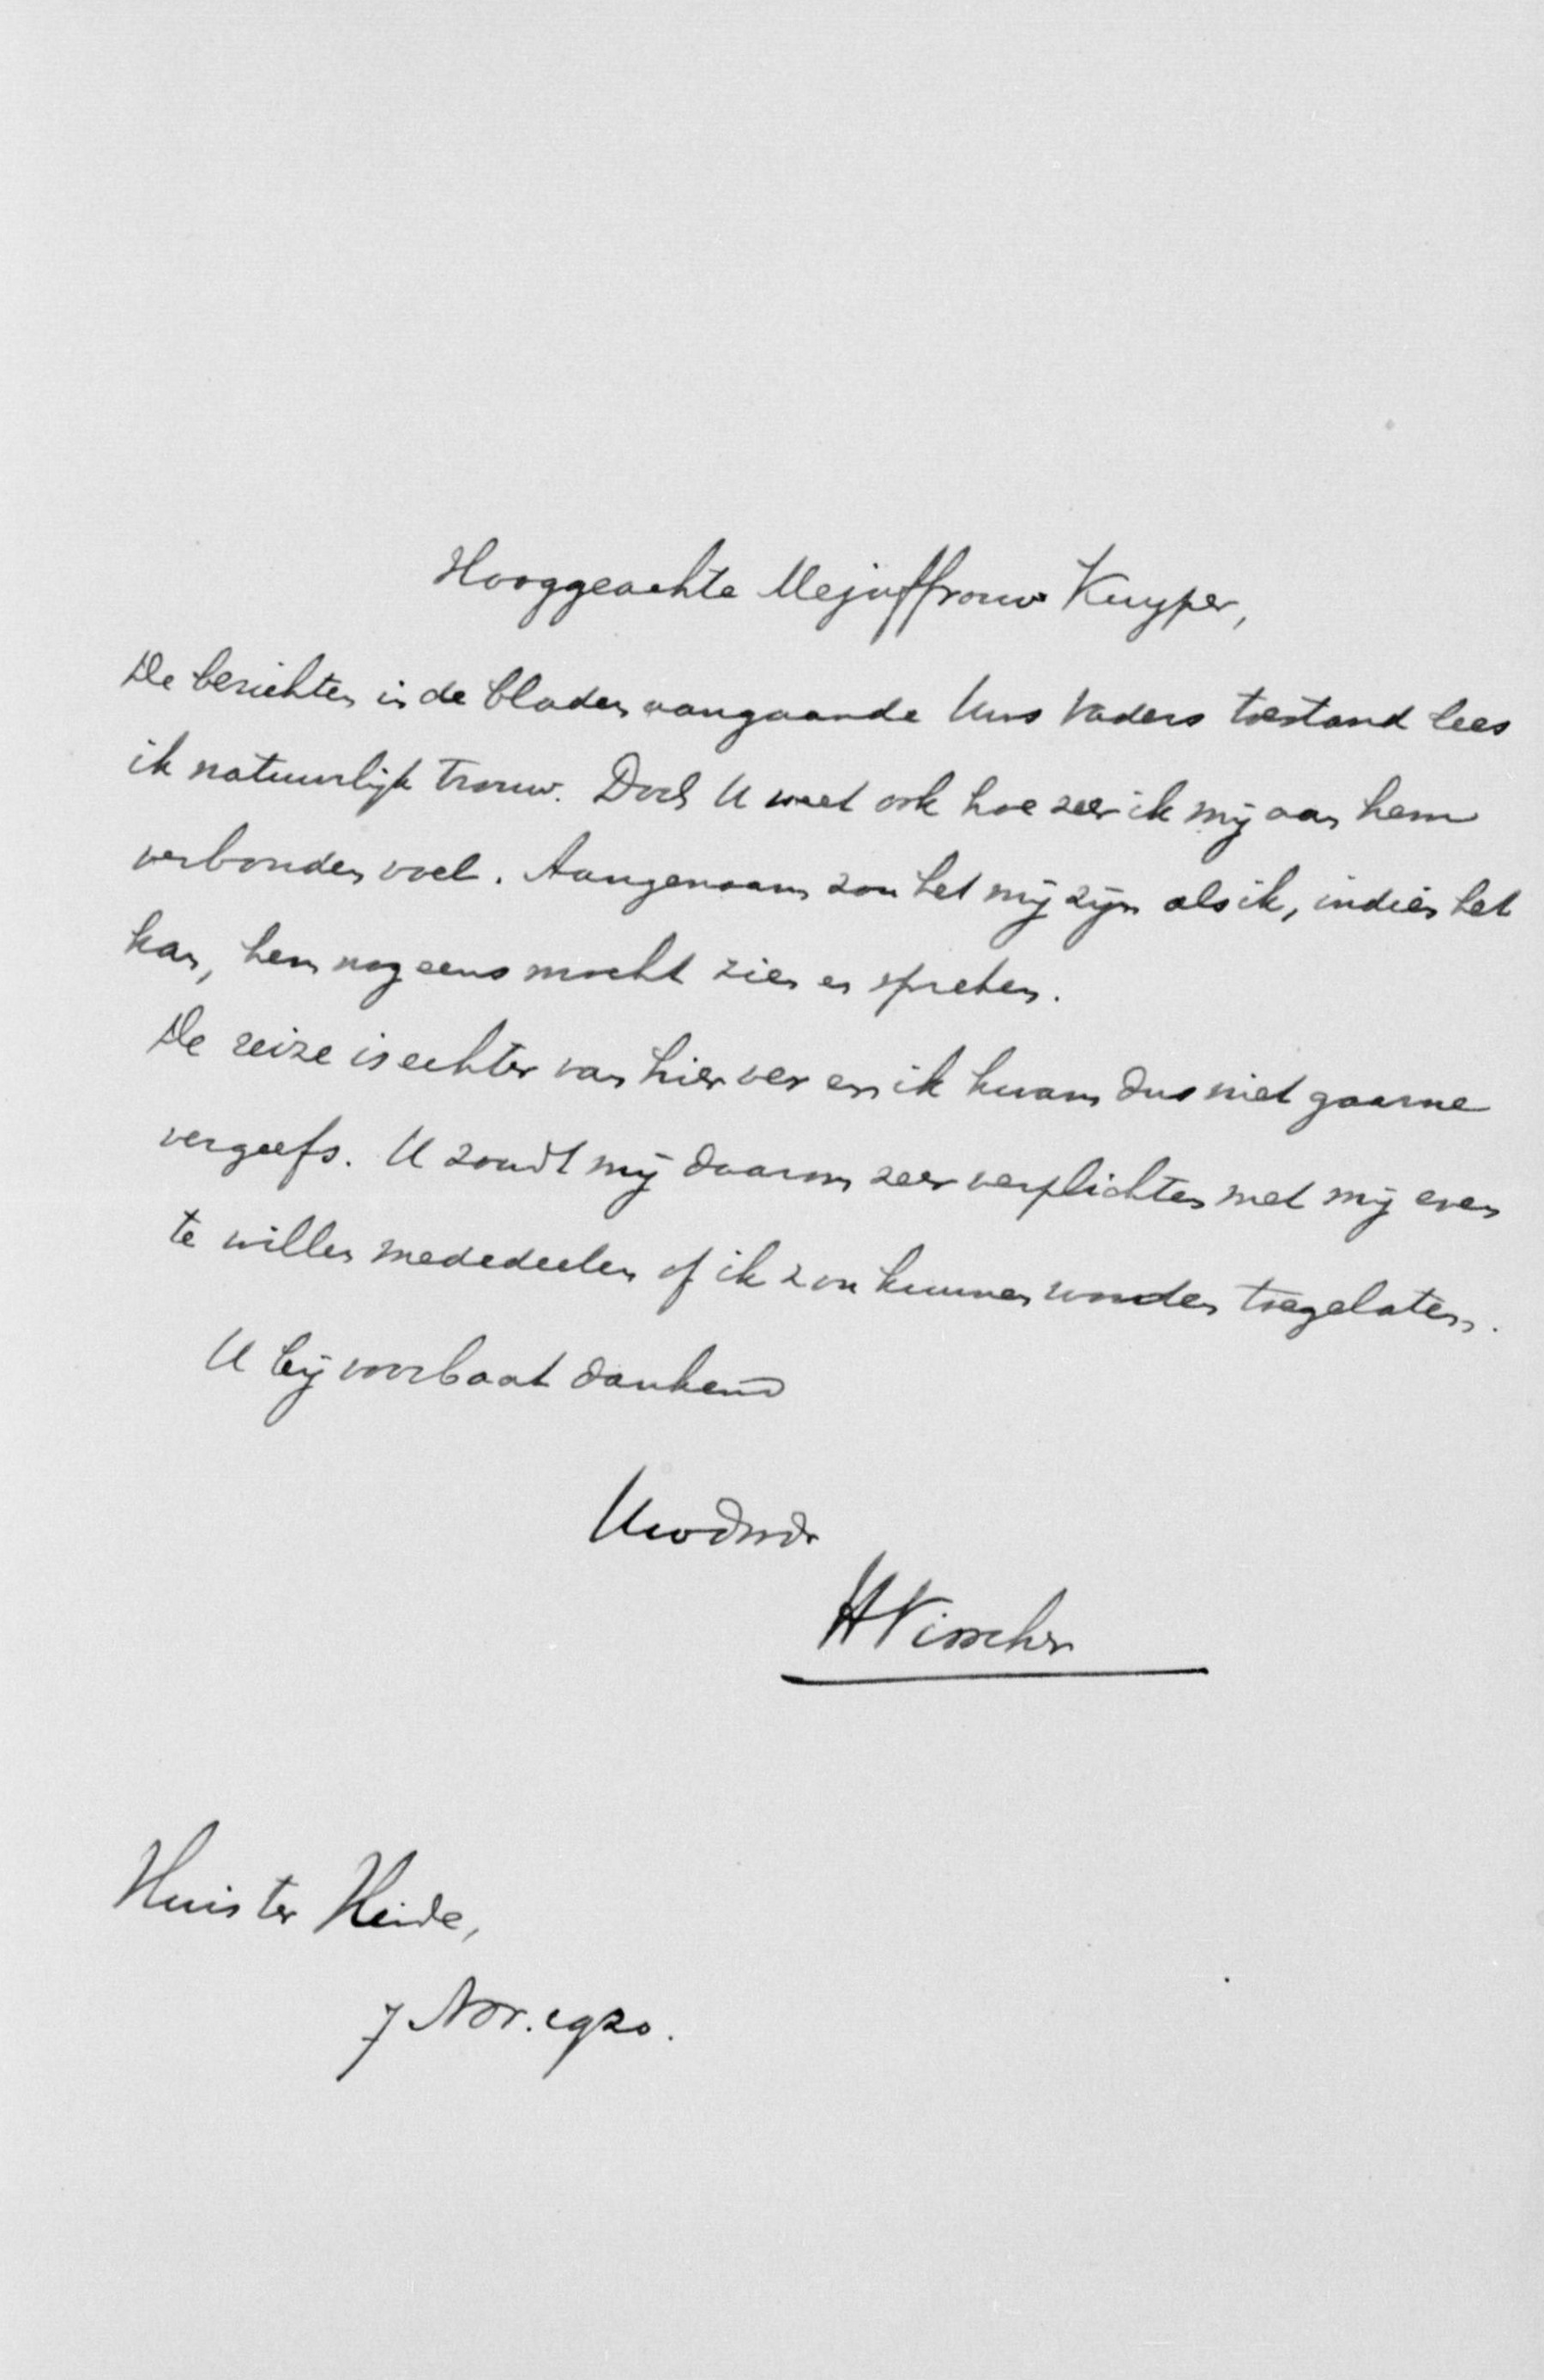 Hooggeachte Mejuffrouw Kuyper,
De berichten in de bladen aangaande Uws Vaders toestand lees
ik natuurlijk trouw. Doch U weet ook hoe zeer ik mij aan hem
verbonden voel. Aangenaam zou het mij zijn als ik, indien het
kan, hem nog eens mocht zien en spreken.
De reize is echter van hier ver en ik kwam dus niet gaarne
vergeefs. U zoudt mij daarom zeer verplichten met mij even
te willen mededeelen of ik zou kunnen worden toegelaten.
U bij voorbaat dankend
Uwdwdr
HVisscher
Huis ter Heide,
7 Nov. 1920.